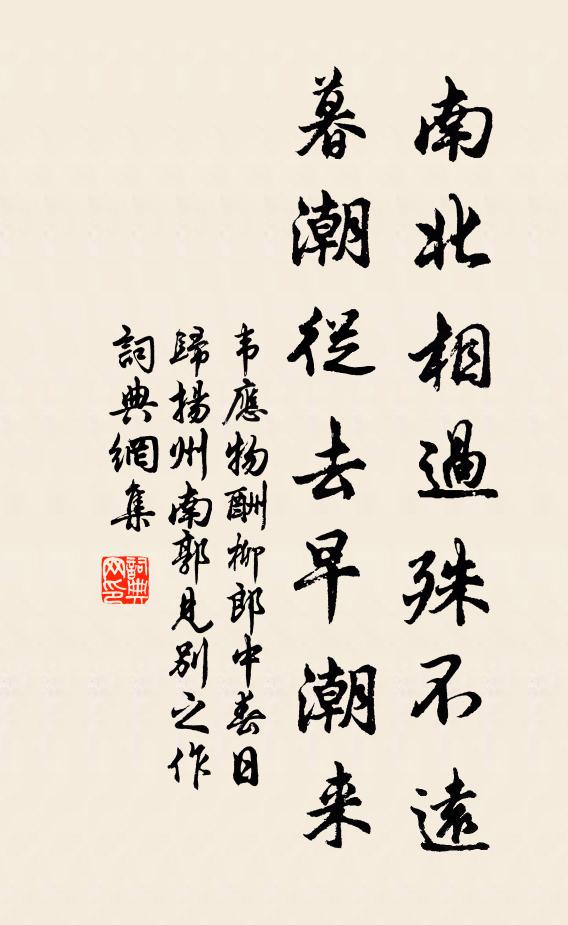 南北相過殊不遠
暮潮從去早潮来
韦應物酬柳郎中春日
歸揚州南郭見別之作
詞典網集
詞典網印